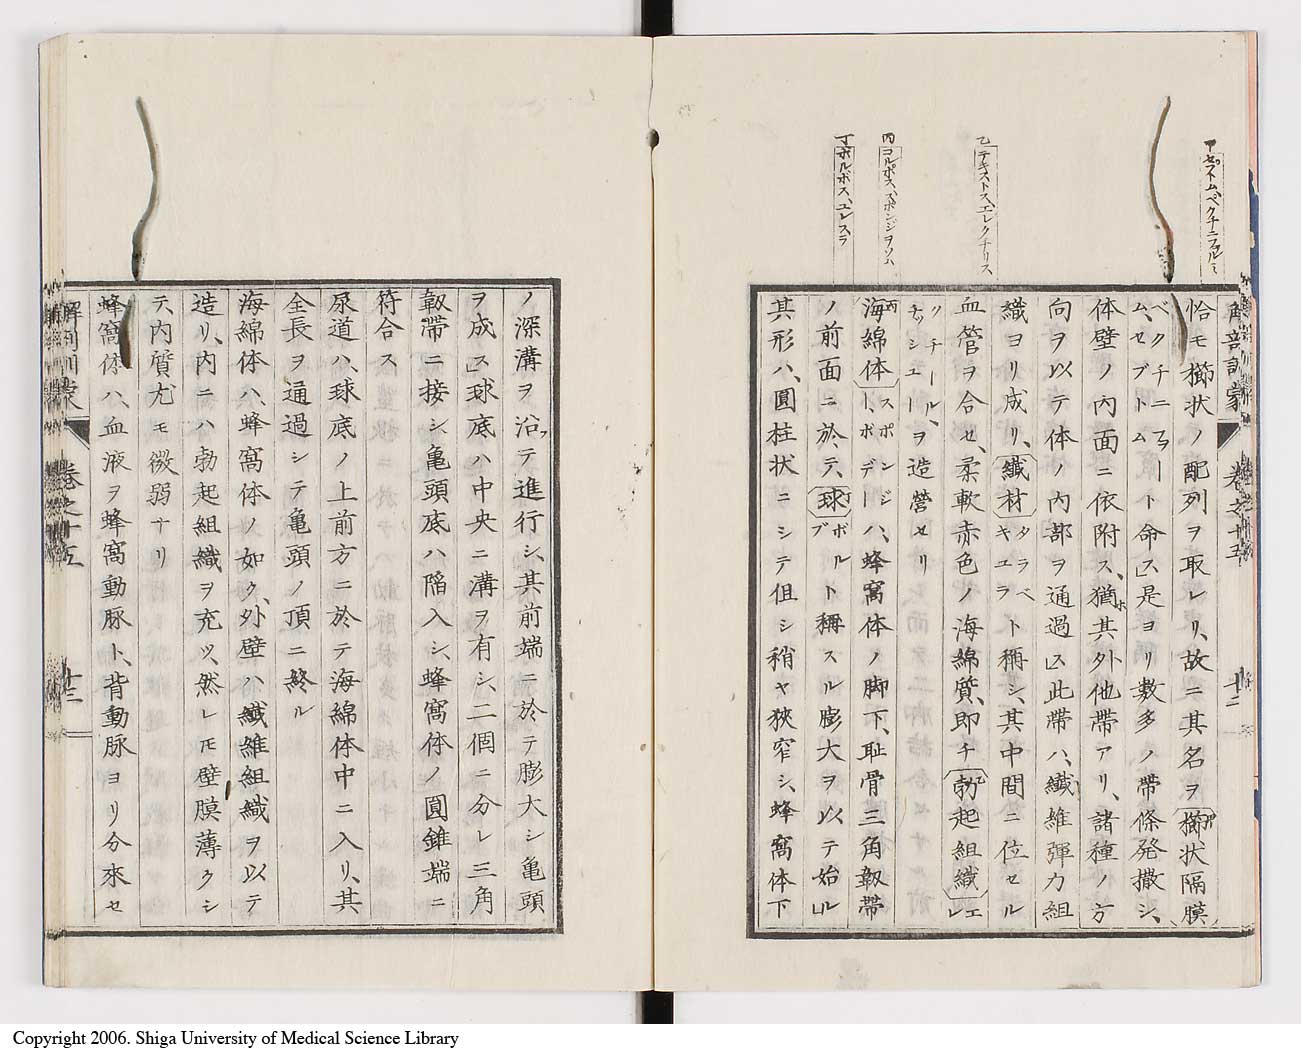 セプトム、ペクチニフルミ
乙テキストス、エレクチリス
丙コルポス、スポンジヲソム
丁ボルボス、ユレスラ
解剖訓蒙 巻之十五 十二
恰モ櫛状ノ配列ヲ取レリ、故ニ其名ヲ櫛状隔膜
ペクチニフヲーム、セプトムト命ス」是ヨリ数多ノ帯條発撒シ、
体壁ノ内面ニ依附ス、猶ホ其外他帯アリ、諸種ノ方
向ヲ以テ体ノ内部ヲ通過ス此帯ハ、纎維弾力組
織ヨリ成リ、纎材タラベキユラト稱シ、其中間ニ位セル
血管ヲ合セ、柔軟赤色ノ海綿質、即チ勃起組織エレ
クチール、チッシユーヲ造營セリ
丙海綿体スポンジト、ボデーハ、蜂窩体ノ脚下、耻骨三角靱帯
ノ前面ニ於テ、球ボルブト稱スル膨大ヲ以テ始ル」
其形ハ、圓柱状ニシテ但シ稍ヤ狹窄シ、蜂窩体下
ノ深溝ヲ沿フテ進行シ、其前端ニ於テ膨大シ亀頭
ヲ成ス」球底ハ中央ニ溝ヲ有シ、二個ニ分レ三角
靱帯ニ接シ亀頭底ハ陥入シ、蜂窩体ノ圓錐端ニ
符合ス
尿道ハ、球底ノ上前方ニ於テ海綿体中ニ入リ、其
全長ヲ通過シテ亀頭ノ頂ニ終ル
海綿体ハ、蜂窩体ノ如ク、外壁ハ纎維組織ヲ以テ
造リ、内ニハ勃起組織ヲ充ツ、然レモ壁膜薄クシ
テ、内質尤モ微弱ナリ
蜂窩体ハ、血液ヲ蜂窩動脉ト、背動脉ヨリ分來セ
巻之十五 十三
Copyright 2006. Shiga University of Medical Science Library